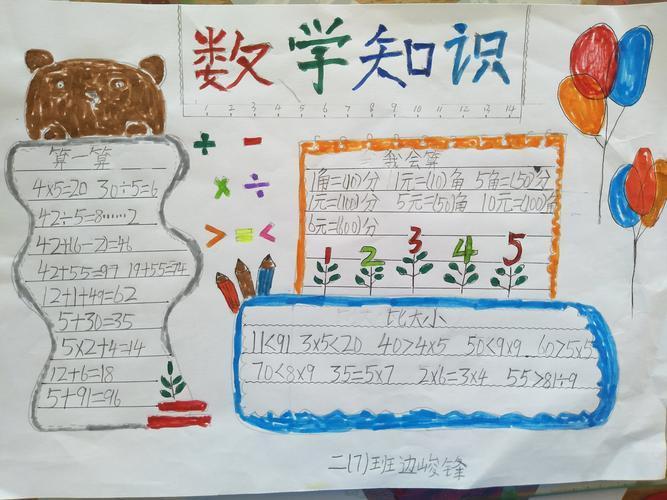 数学知识
1 2 3 4 5 6 7 8 9 10 11 12 13 14
+ -
× ÷
> = <
算一算
4×5=20 30÷5=6
42÷5=8……2
42+(6-2)=46
42+55=97 19+55=74
12+1+49=62
5+30=35
5×2+4=14
12+6=18
5+91=96
我会算
1角=(10)分 1元=(10)角 5角=(50)分
1元=(100)分 5元=(50)角 10元=(100)角
6元=(600)分
1 2 3 4 5
比大小
11<91 3×5<20 40>4×5 50<9×9 60>5×5
70<8×9 35=5×7 2×6=3×4 55>81÷9
二(7)班边峻锋